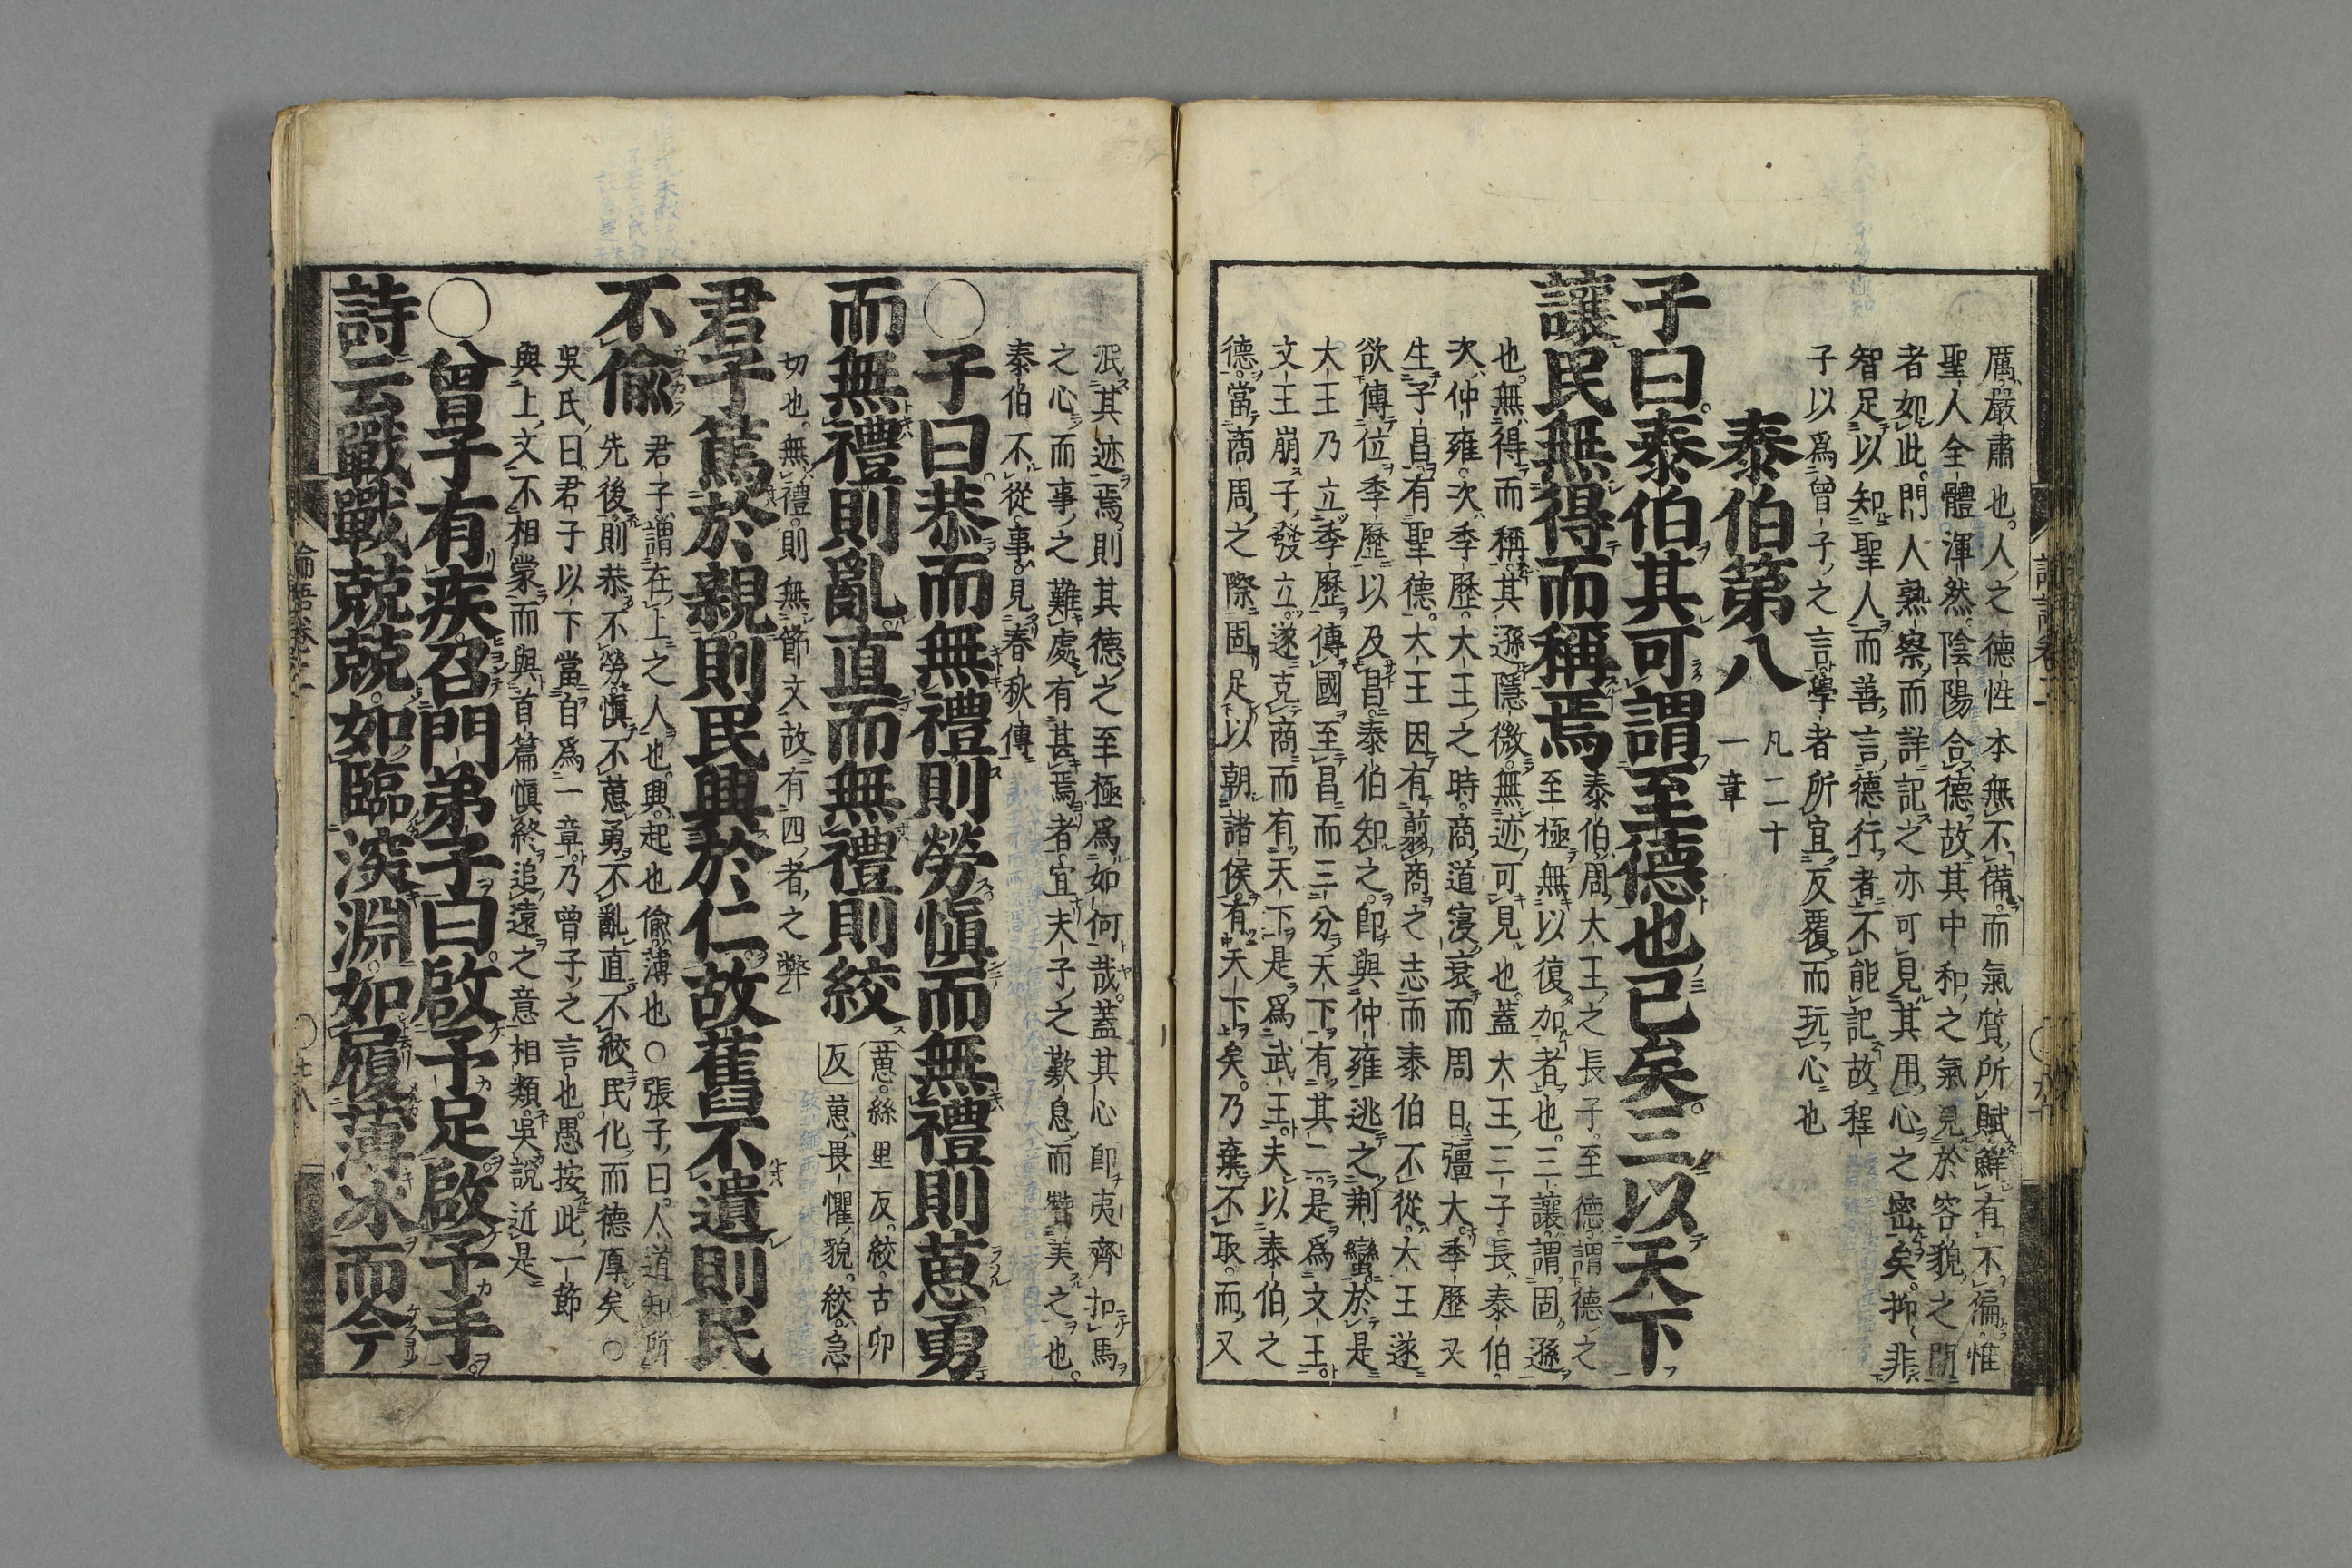 厲。嚴肅也。人之德性本無不備。而氣質所賦鮮有不偏。惟
聖人全體渾然。陰陽合德。故其中和之氣見於容貌之間
者如此。門人熟察而詳記之。亦可見其用心之密矣。抑非
智足以知聖人而善言德行者不能記。故程
子以爲曾子之言。學者所宜反覆而玩心也
泰伯第八
凡二十
一章
子曰。泰伯其可謂至德也已矣。三以天下
讓民無得而稱焉
泰伯。周大王之長子。至德。謂德之
至極無以復加者也。三讓。謂固遜
也。無得而稱。其遜隱微。無迹可見也。蓋大王三子。長泰伯。
次仲雍。次季歷。大王之時。商道寖衰。而周日彊大。季歷又
生子昌。有聖德。大王因有翦商之志。而泰伯不從。大王遂
欲傳位季歷以及昌。泰伯知之。卽與仲雍逃之荊蠻。於是
大王乃立季歷。傳國至昌。而三分天下有其二。是爲文王。
文王崩。子發立。遂克商而有天下。是爲武王。夫以泰伯之
德。當商周之際。固足以朝諸侯有天下矣。乃棄不取。而又
泯其迹焉。則其德之至極爲如何哉。蓋其心卽夷齊扣馬
之心。而事之難處有甚焉者。宜夫子之歎息而贊美之也。
泰伯不從。事見春秋傳
○子曰。恭而無禮則勞愼而無禮則葸勇
而無禮則亂直而無禮則絞
葸。絲里反。絞。古卯
反 葸。畏懼貌。絞。急
切也。無禮。則無節文。故有四者之弊
君子篤於親則民興於仁。故舊不遺則民
不偸
君子。謂在上之人也。興。起也偸。薄也○張子曰。人道知所
先後。則恭不勞。愼不葸。勇不亂。直不絞。民化而德厚矣。○
吳氏曰。君子以下。當自爲一章。乃曾子之言也。愚按此一節
與上文不相蒙。而與首篇愼終追遠之意相類。吳說近是
○曾子有疾。召門弟子曰。啟予足。啟予手。
詩云戰戰兢兢。如臨深淵。如履薄冰。而今
論語卷二